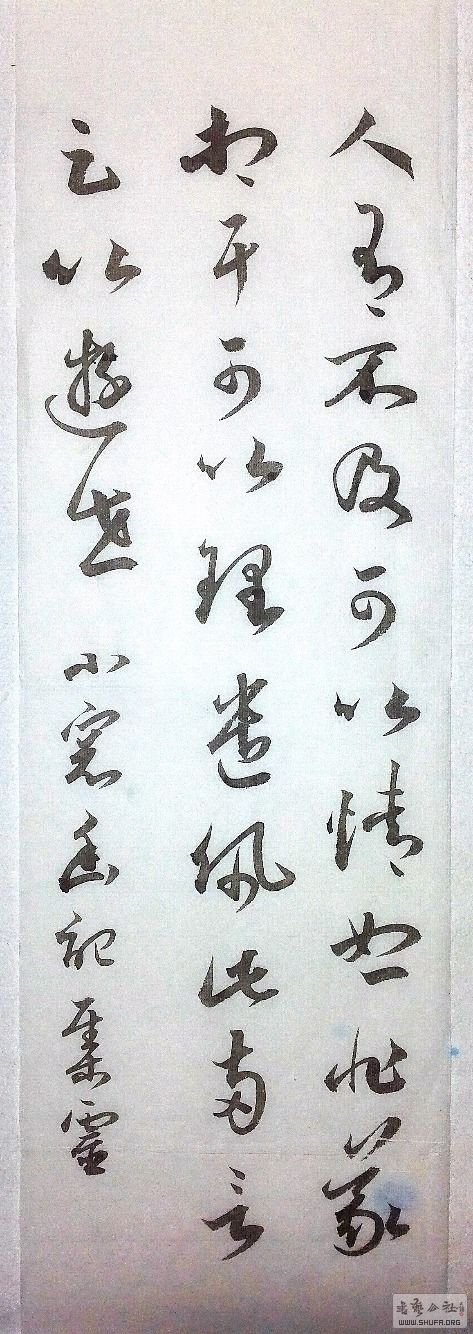 人有不及可以情恕非義
相干可以理遣佩此兩言
足以遊世 小窗幽記 集靈
書藝公社
WWW.SHUFA.ORG